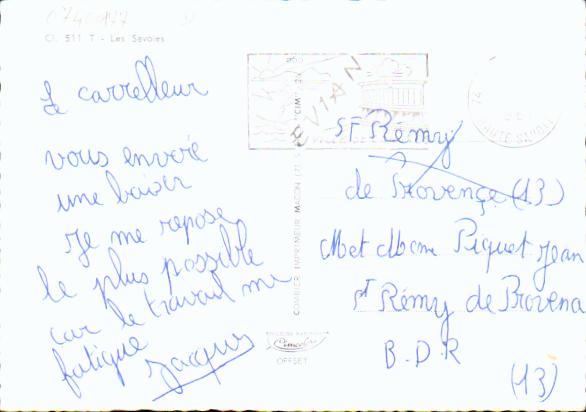 0740177
Cl. 511 T - Les Savoies
Le carreleur
vous envoie
une baiser
Je me repose
le plus possible
car le travail me
fatigue
Jacques
COMBIER IMPRIMEUR MACON
"CIM"
EVIAN
74
HAUTE-SAVOIE
ST Rémy
de Provençe (13)
M et Mme Piquet Jean
ST Rémy de Provena
B.D.R
(13)
OFFSET